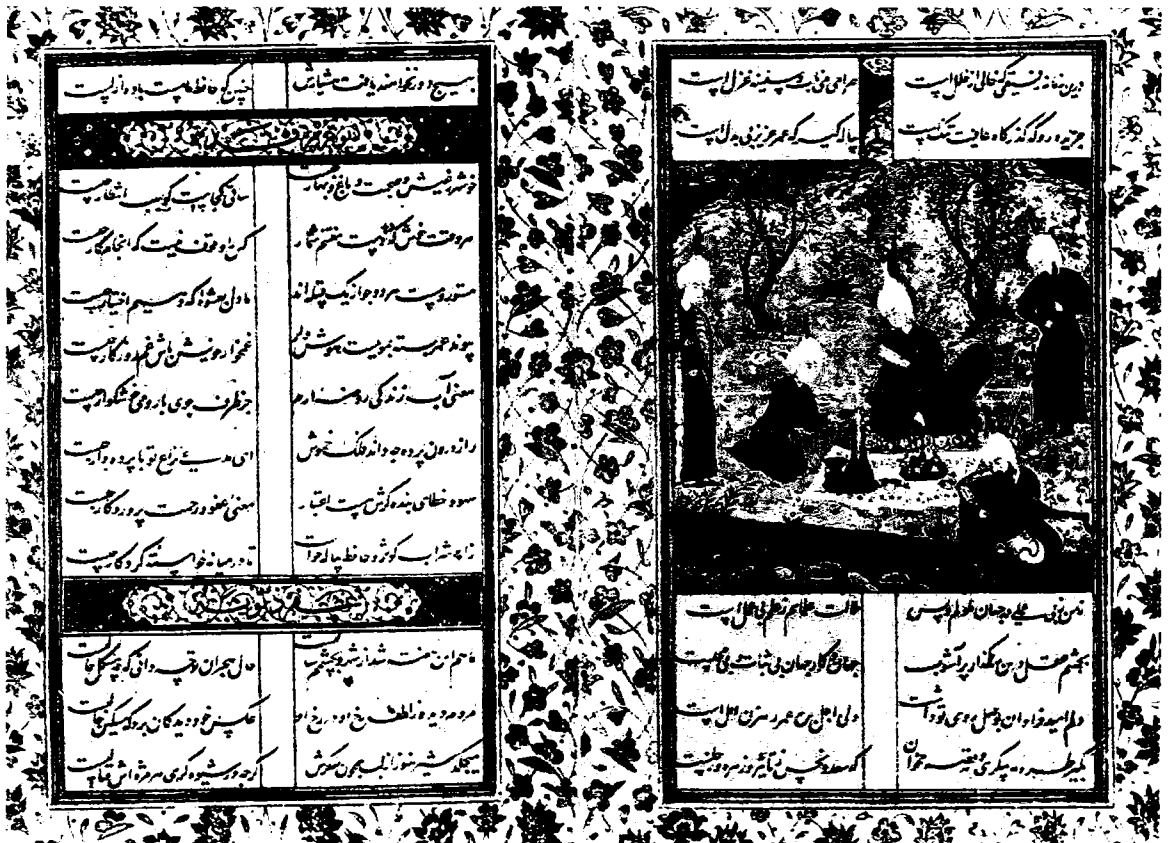 درین زمانه رفیقی که خالی از خلل است صراحی می ناب و سفینه غزل است
جریده رو که گذرگاه عافیت تنگ است پیاله گیر که عمر عزیز بی بدل است
نه من ز بی عملی در جهان ملولم و بس ملالت علما هم ز علم بی عمل است
بچشم عقل درین رهگذار پر آشوب جهان و کار جهان بی ثبات و بی محل است
دلم امید فراوان بوصل روی تو داشت ولی اجل بره عمر رهزن امل است
بگیر طره مه پیکری و قصه مخوان که سعد و نحس ز تاثیر زهره و زحل است
بهیچ دور نخواهند یافت هشیارش چنین که حافظ ما مست باده ازل است
خوشتر ز عیش و صحبت و باغ و بهار چیست ساقی کجاست گو سبب انتظار چیست
هر وقت خوش که دست دهد مغتنم شمار کس را وقوف نیست که انجام کار چیست
مستور و مست هر دو چو از یک قبیله اند ما دل بعشوه که دهیم اختیار چیست
پیوند عمر بسته بموییست هوش دار غمخوار خویش باش غم روزگار چیست
معنی آب زندگی و روضه ارم جز طرف جوی بار و می خوشگوار چیست
راز درون پرده چه داند فلک خموش ای مدعی نزاع تو با پرده دار چیست
سهو و خطای بنده گرش هست اعتبار معنی عفو و رحمت پروردگار چیست
زاهد شراب کوثر و حافظ پیاله خواست تا در میانه خواسته کردگار چیست
ماهم این هفته شد از شهر و بچشمم سالیست حال هجران تو چه دانی که چه مشکل حالیست
مردم دیده ز لطف رخ او در رخ او عکس خود دید گمان برد که مشکین خالیست
میچکد شیر هنوز از لب همچون شکرش گرچه در شیوه گری هر مژه اش قتالیست